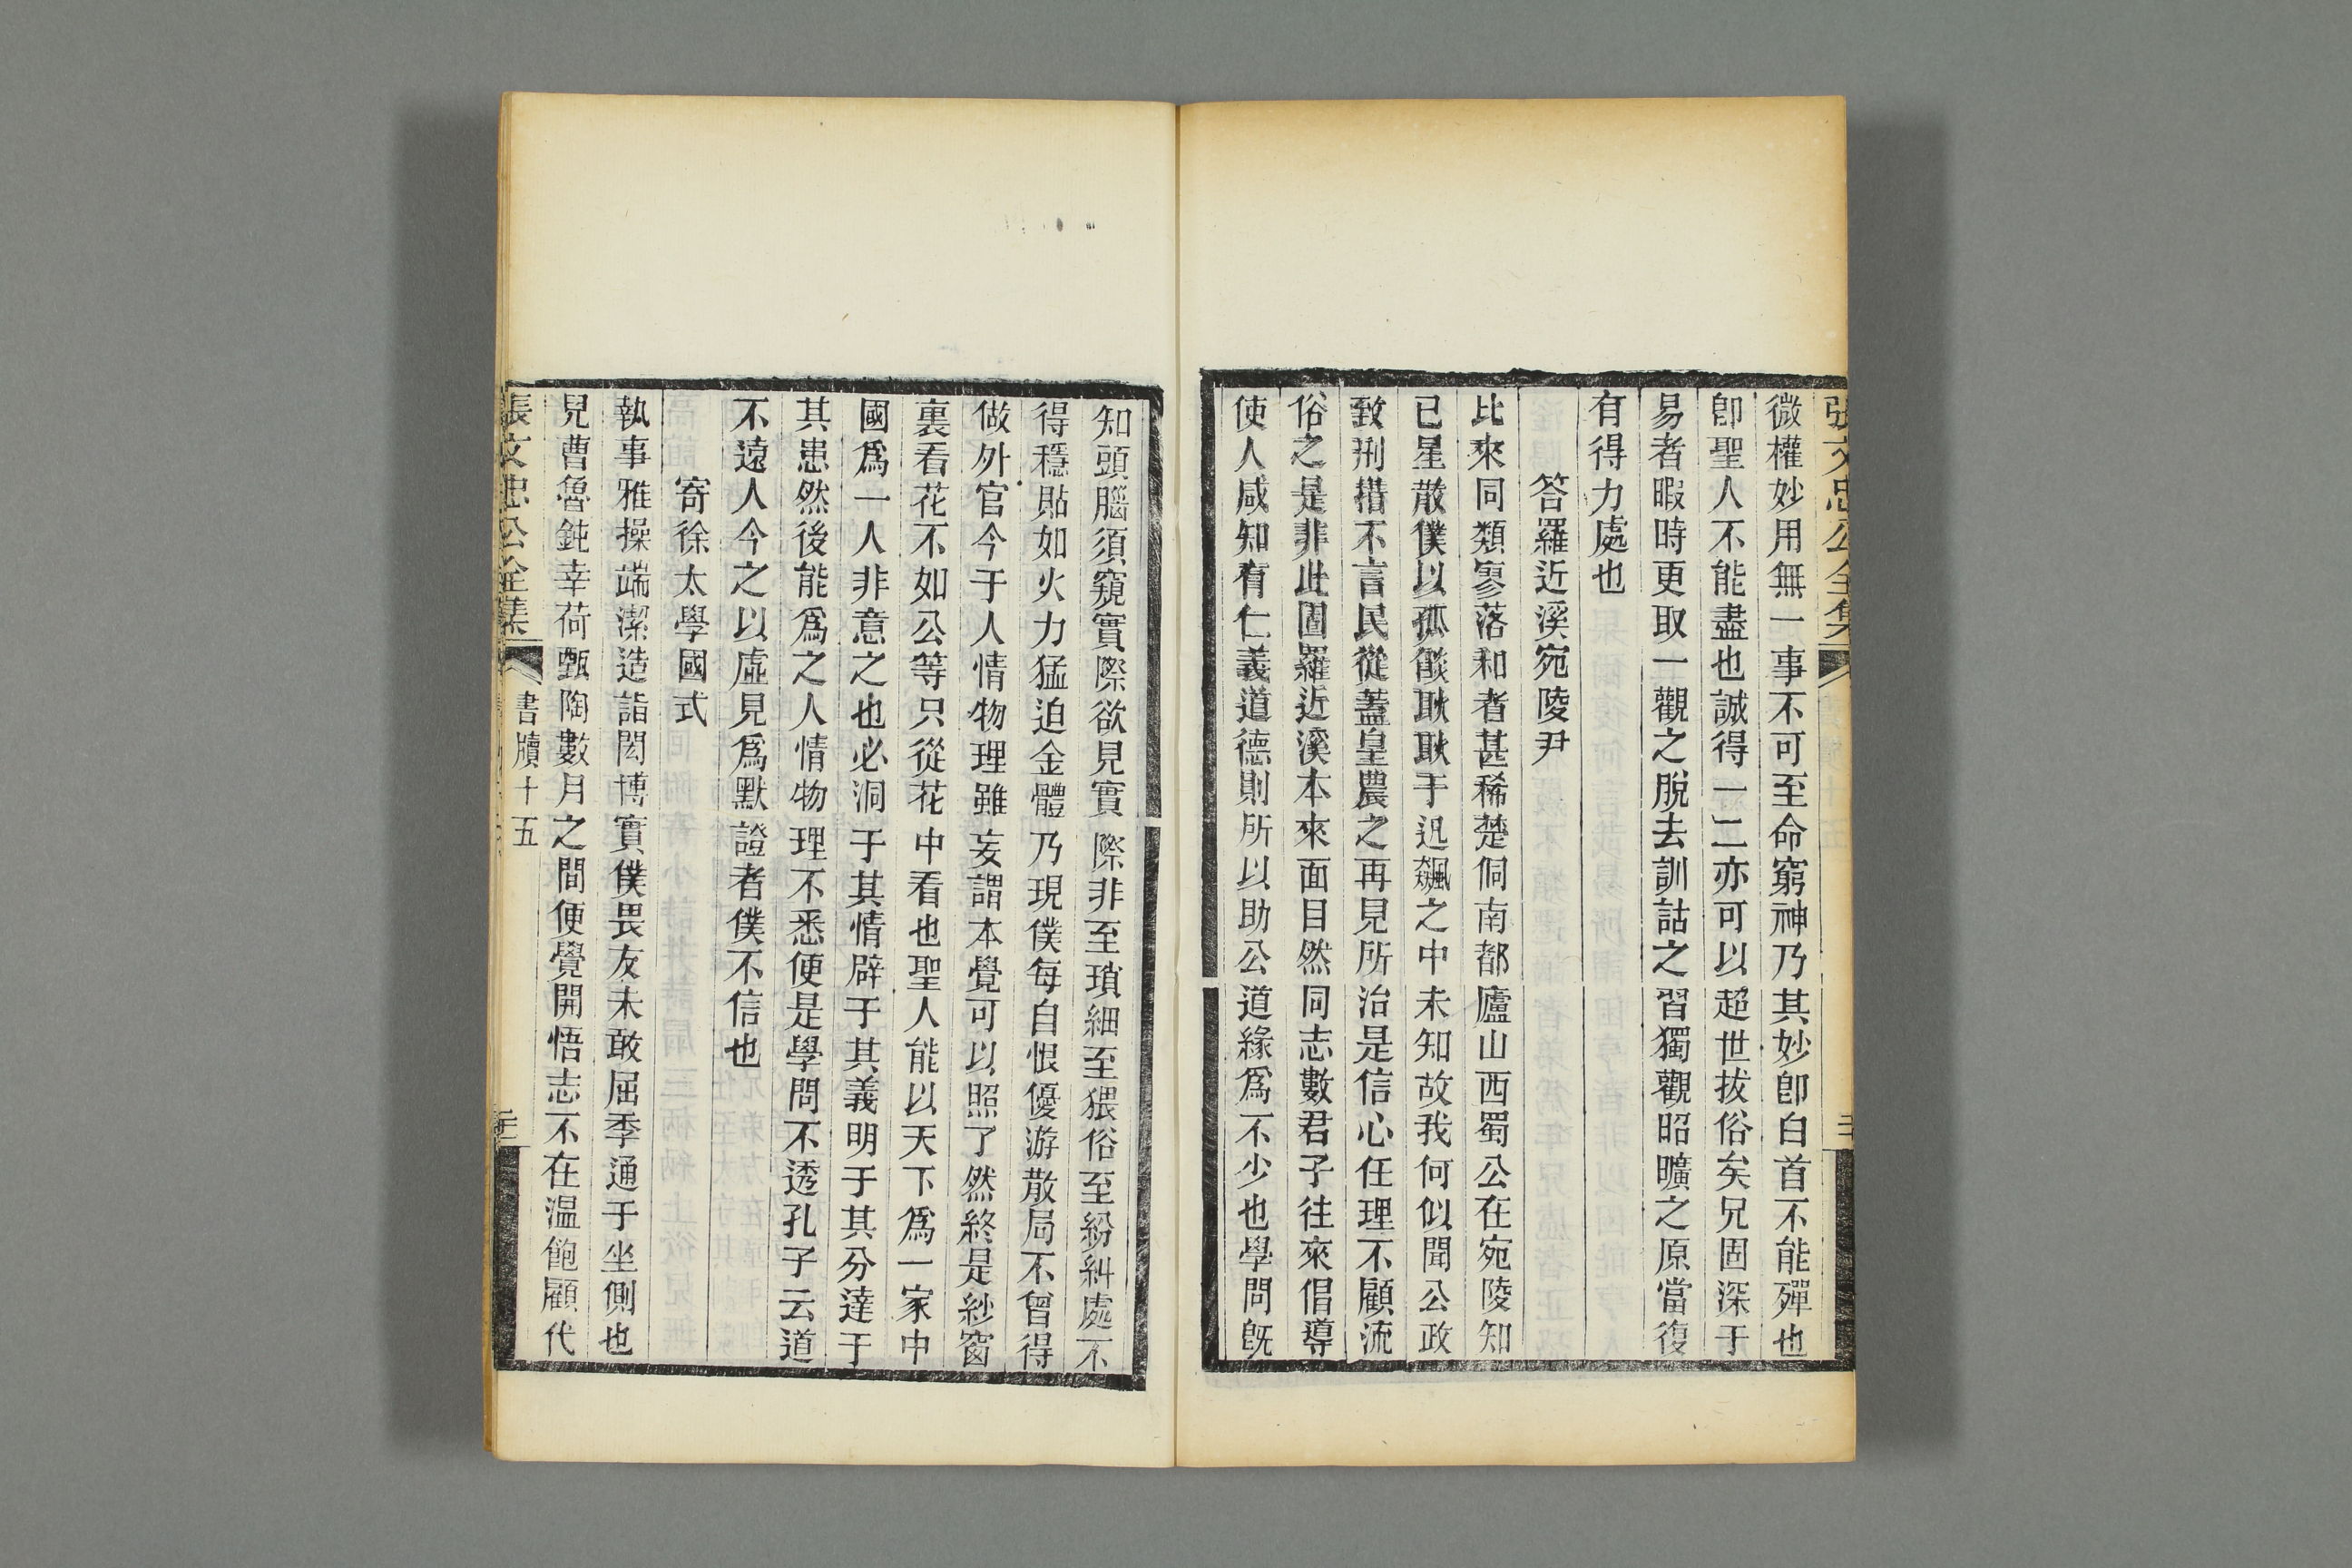 張文忠公全集
微權妙用無一事不可至命窮神乃其妙卽白首不能殫也
卽聖人不能盡也誠得一二亦可以超世拔俗矣兄固深于
易者暇時更取一觀之脫去訓詁之習獨觀昭曠之原當復
有得力處也
答羅近溪宛陵尹
比來同類寥落和者甚稀楚侗南都廬山西蜀公在宛陵知
已星散僕以孤燄耿耿于迅飆之中未知故我何似聞公政
致刑措不言民從蓋皇農之再見所治是信心任理不顧流
俗之是非此固羅近溪本來面目然同志數君子往來倡導
使人咸知有仁義道德則所以助公道緣爲不少也學問旣
知頭腦須窺實際欲見實際非至瑣細至猥俗至紛糾處不
得穩貼如火力猛迫金體乃現僕每自恨優游散局不曾得
做外官今于人情物理雖妄謂本覺可以照了然終是紗窗
裏看花不如公等只從花中看也聖人能以天下爲一家中
國爲一人非意之也必洞于其情辟于其義明于其分達于
其患然後能爲之人情物理不悉便是學問不透孔子云道
不遠人今之以虛見爲默證者僕不信也
寄徐太學國式
執事雅操端潔造詣閎博實僕畏友未敢屈季通于坐側也
見曹魯鈍幸荷甄陶數月之間便覺開悟志不在溫飽顧代
張文忠公全集 書牘十五